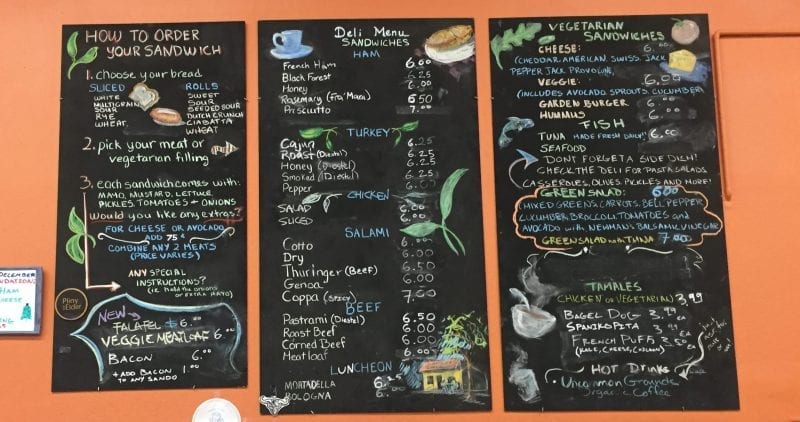 HOW TO ORDER
YOUR SANDWICH
1. choose your bread
SLICED
WHITE
MULTIGRAIN
SOUR
RYE
WHEAT
ROLLS
SWEET
SOUR
SEEDED SOUR
DUTCH CRUNCH
CIABATTA
WHEAT
2. pick your meat or
vegetarian filling
3. each sandwich comes with:
MAYO, MUSTARD, LETTUCE
PICKLES, TOMATOES + ONIONS
Would you like any extras?
FOR CHEESE OR AVOCADO
ADD 75¢
COMBINE ANY 2 MEATS
(PRICE VARIES)
ANY SPECIAL
INSTRUCTIONS?
(ie. hold the onions
or EXTRA MAYO)
Pliny
the Elder
NEW
FALAFEL $6.00
VEGGIE MEATLOAF 6.00
BACON 6.00
+ ADD BACON 1.00
TO ANY SANDO
DECEMBER
HAM
Deli Menu
SANDWICHES
HAM
French Ham 6.00
Black Forest 6.25
Honey 6.00
Rosemary (Fra'Mani) 6.50
Prosciutto 7.00
TURKEY
Cajun 6.25
Roast (Diestel) 6.25
Honey (Diestel) 6.25
Smoked (Diestel) 6.25
Pepper 6.00
CHICKEN
SALAD 6.00
SLICED 6.00
SALAMI
Cotto 6.00
Dry 6.00
Thuringer (Beef) 6.50
Genoa 6.00
Coppa (Spicy) 7.50
BEEF
Pastrami (Diestel) 6.50
Roast Beef 6.00
Corned Beef 6.00
Meatloaf 6.00
LUNCHEON
MORTADELLA 6.25
BOLOGNA 6.00
VEGETARIAN
SANDWICHES
CHEESE: 6.00
(CHEDDAR, AMERICAN, SWISS, JACK
PEPPER JACK PROVOLONE)
VEGGIE: 6.00
(INCLUDES AVOCADO, SPROUTS, CUCUMBER)
GARDEN BURGER 6.00
HUMMUS 6.00
FISH
TUNA MADE FRESH DAILY!! 6.00
SEAFOOD
DON'T FORGET A SIDE DISH!
CHECK THE DELI FOR PASTA SALADS
CASSEROLES, OLIVES, PICKLES AND MORE!
GREEN SALAD: 6.00
(MIXED GREENS, CARROTS, BELL PEPPER
CUCUMBER, BROCCOLI, TOMATOES and
AVOCADO with NEWMAN'S BALSAMIC VINEGAR
GREEN SALAD with TUNA 7.00
TAMALES
CHICKEN OR VEGETARIAN) 3.99
BAGEL DOG 3.99
SPANIKOPITA 3.99
FRENCH PUFF 3.50 ea
(KALE, CHEESE, CHICKEN)
HOT DRINKS
Uncommon Grounds
Organic Coffee